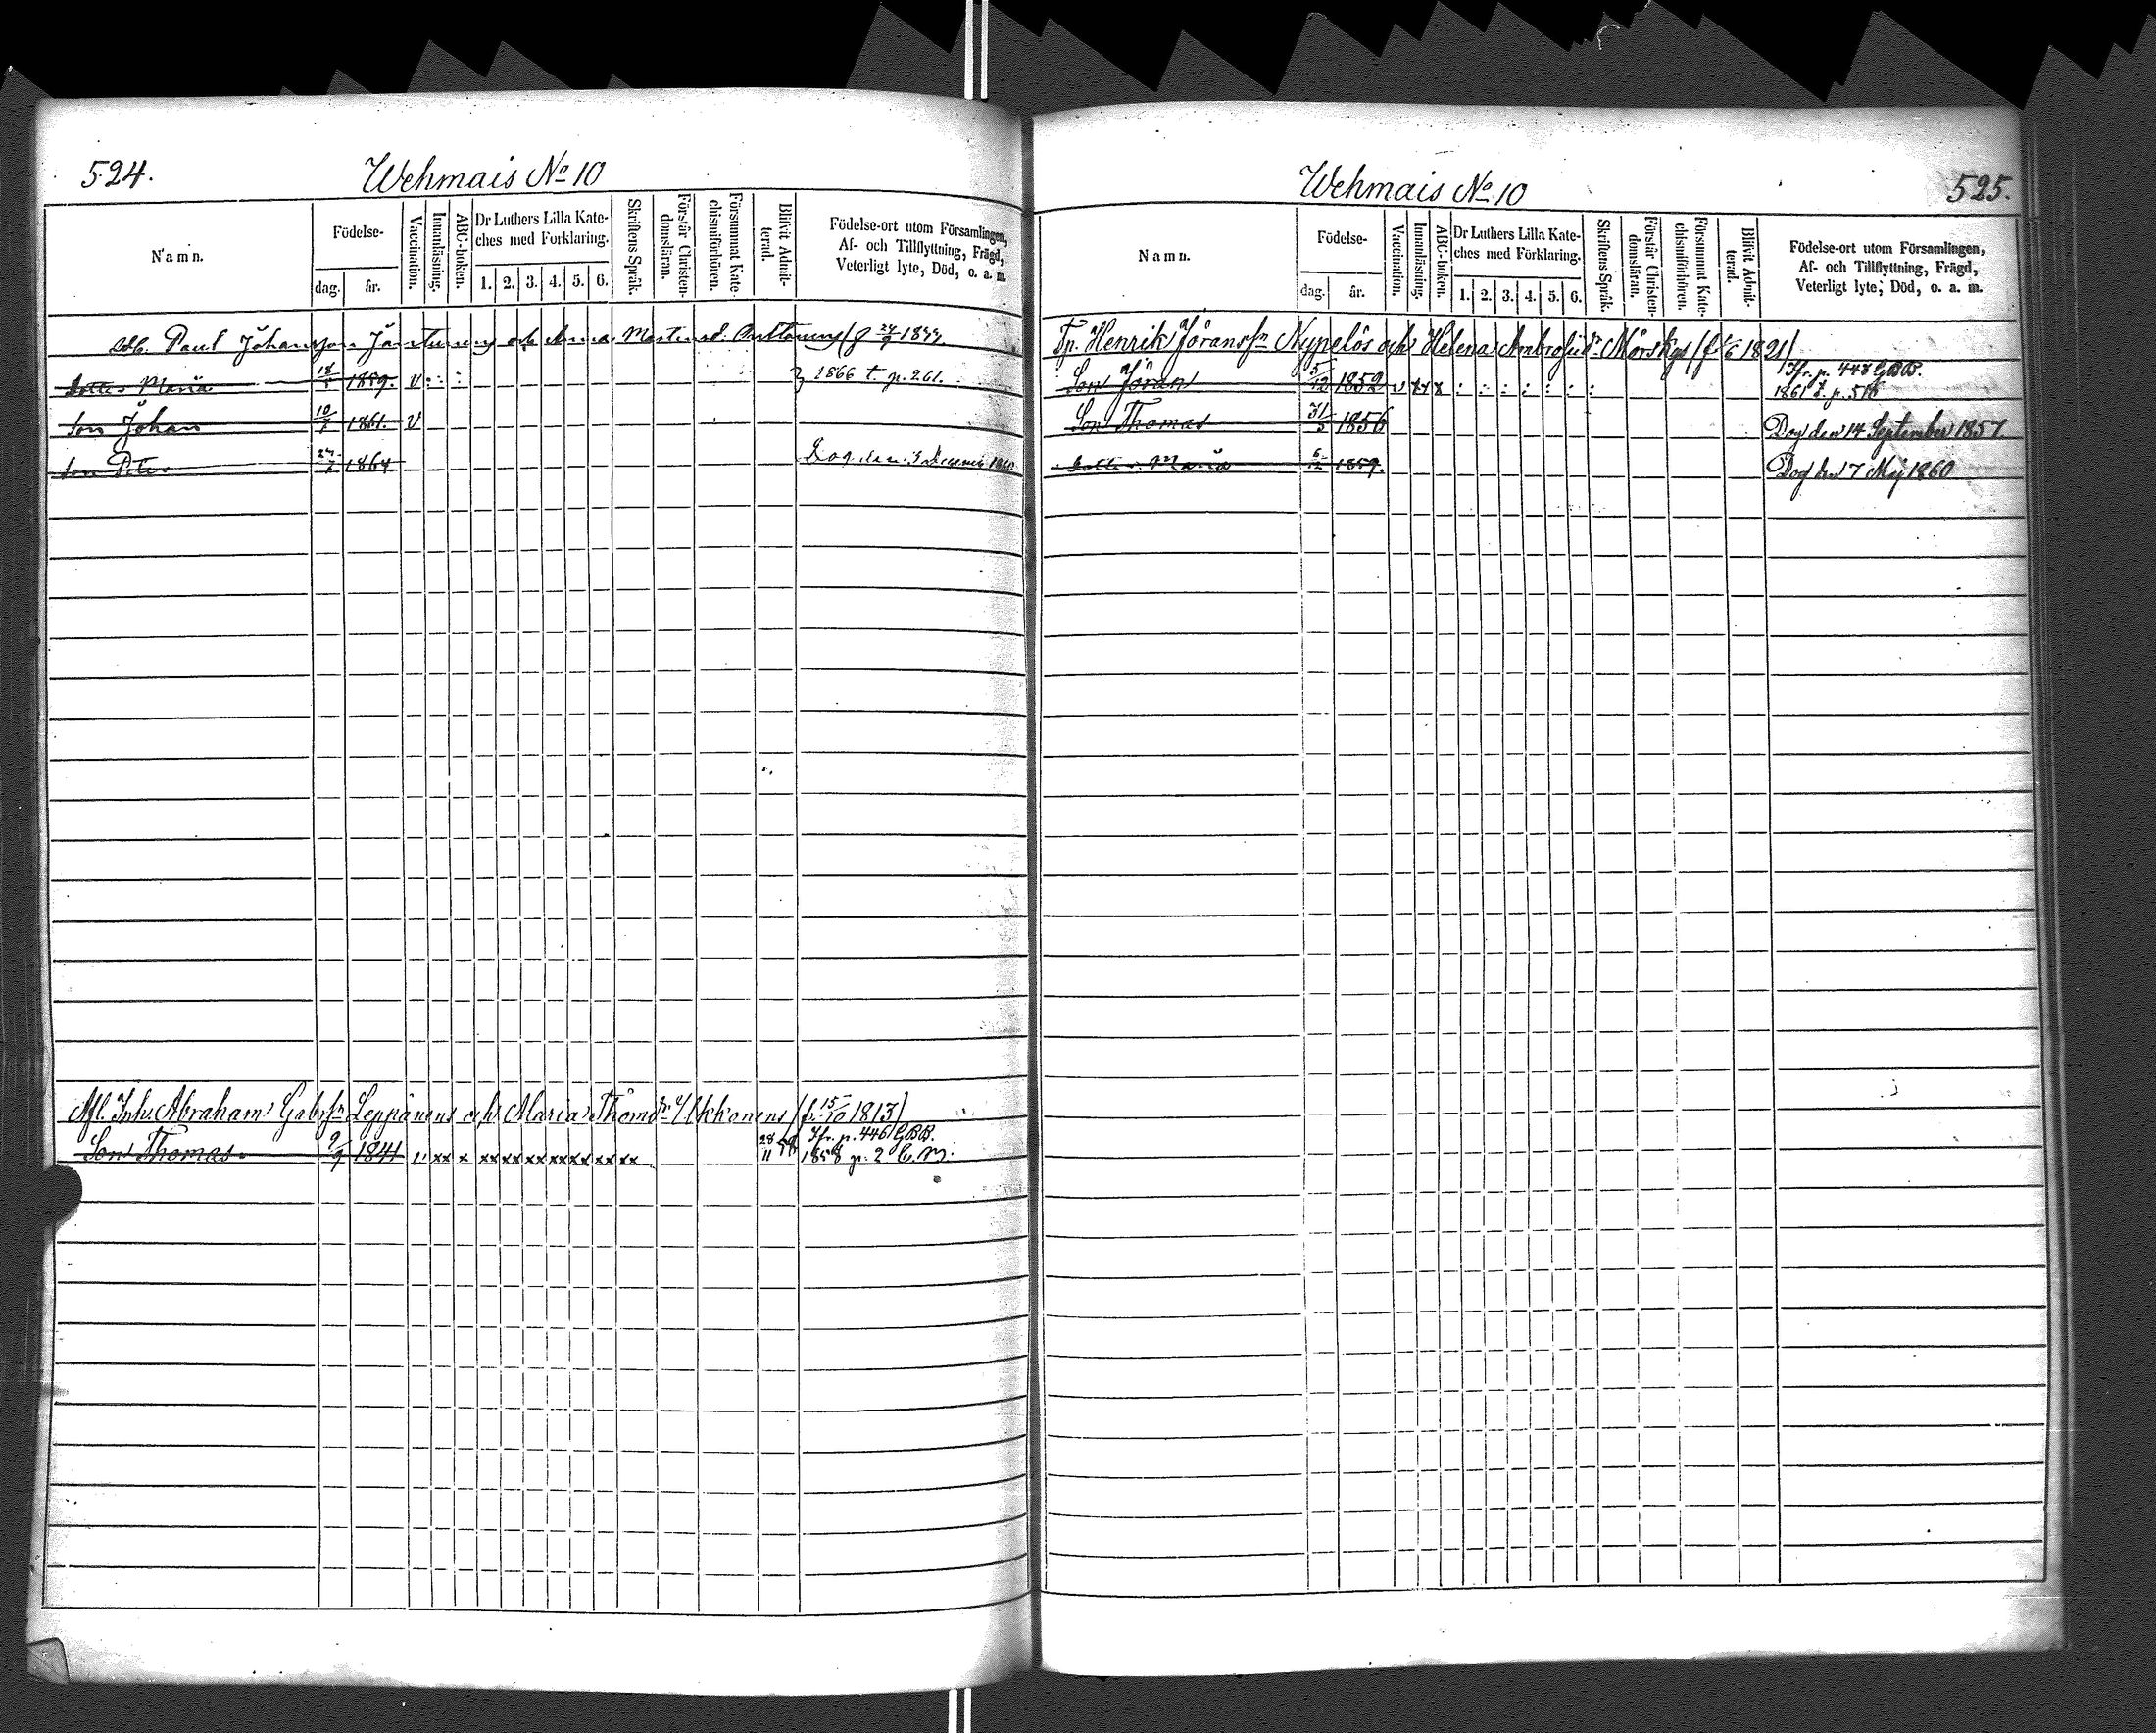 524.
Wehmais No 10
Namn.
Födelse-
dag.
år.
Vaccination.
Innanläsning.
ABC-boken.
Dr Luthers Lilla Kate-
ches med Förklaring.
1. 2. 3. 4. 5. 6.
Skriftens Språk.
Förstår Christen-
domsläran.
Försummat Kate-
chismiförhören.
Blifvit Admit-
terad.
Födelse-ort utom Församlingen,
Af- och Tillflyttning, Frägd,
Veterligt lyte, Död, o. a. m.
Paul Johansson Jäntunens och Anna Martinsd. 24/9 1844
Dotter Maria 18/ 1859. v 1866 t. p. 261.
Son Johan 10/7 1861. v
Son Peter 24/7 1864 Dog den 3 December
Afl. Inh. Abraham Gabrsn Leppänens och Maria Thomdr Ukkonens (f. 15/10 1813)
Jfr. p. 446 GBB.
Son Thomas 9/9 1841 v xx x xx xx xx xx xx xx xx 28/11 58 1858 p. 2 C. M.
Wehmais No 10
525.
Namn.
Födelse-
dag.
år.
Vaccination.
Innanläsning.
ABC-boken.
Dr Luthers Lilla Kate-
ches med Förklaring.
1. 2. 3. 4. 5. 6.
Skriftens Språk.
Förstår Christen-
domsläran.
Försummat Kate-
chismiförhören.
Blifvit Admit-
terad.
Födelse-ort utom Församlingen,
Af- och Tillflyttning, Frägd,
Veterligt lyte, Död, o. a. m.
Tp. Henrik Göranssn Nypelös och Helena Ambrosiidr Mörskys (f. /6 1821)
Jfr. p. 448 GBB.
Son Göran 5/12 1852 v x x x : : : : : : : 1861 t. p. 516
Son Thomas 31/5 1856 Dog den 14 September 1857.
Dotter Maria 6/12 1859. Dog den 7 Maj 1860